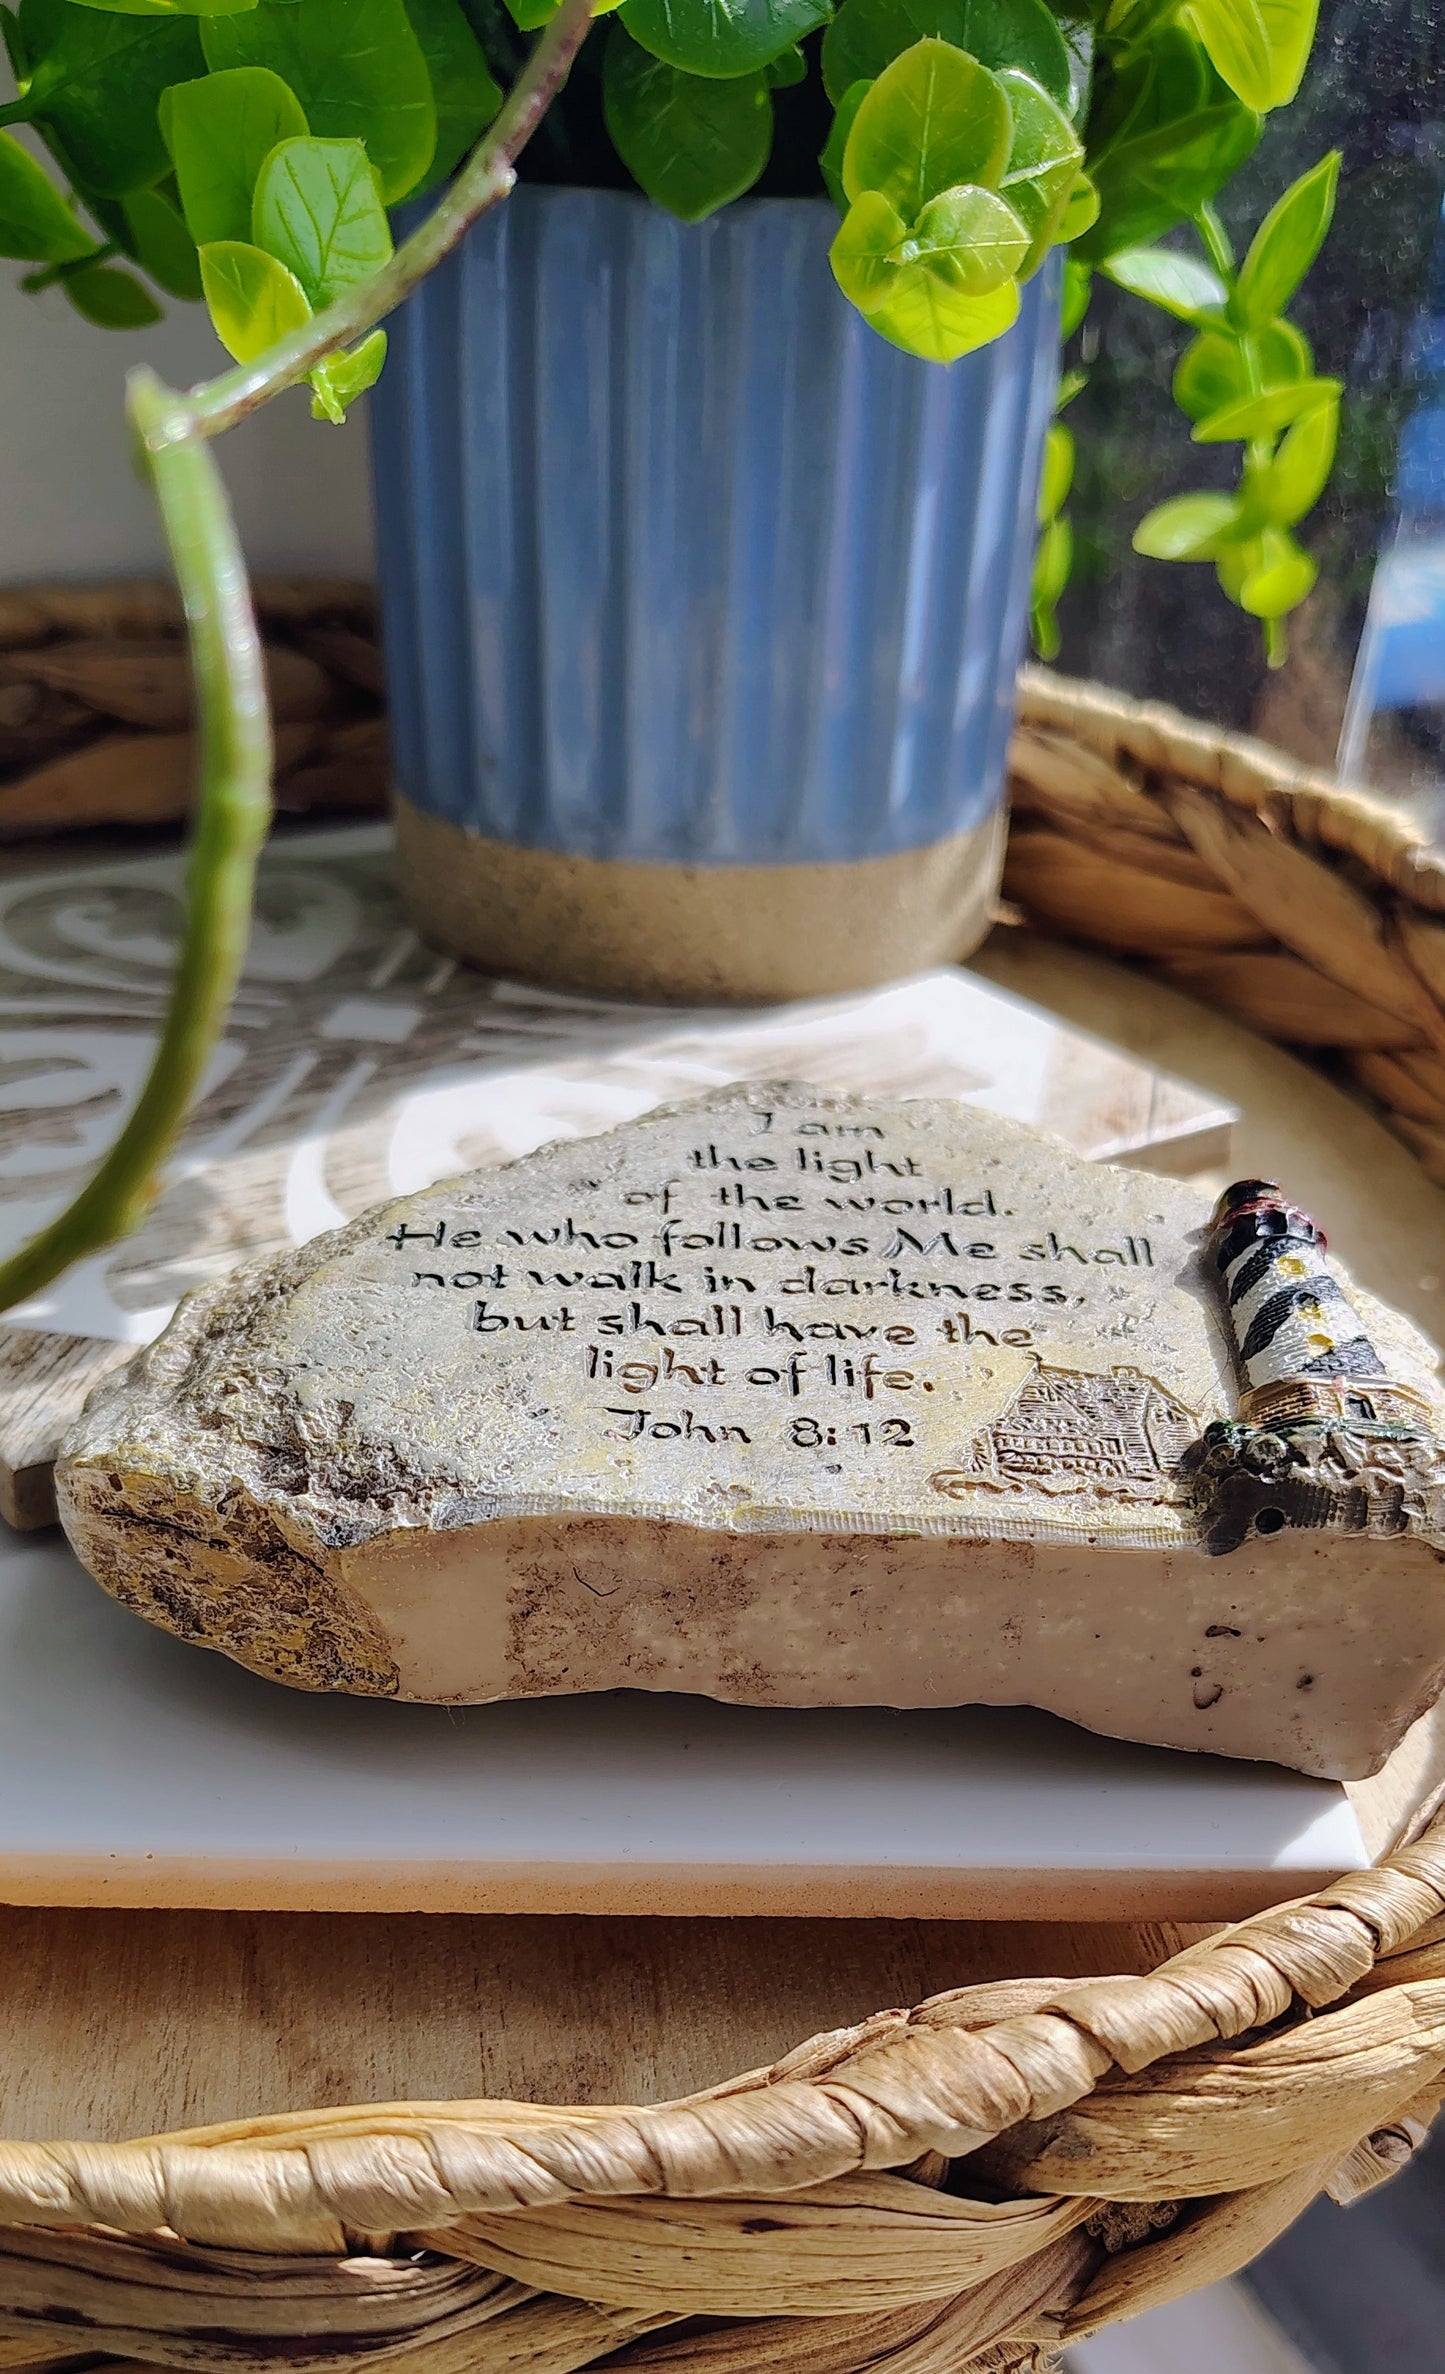 I am
the light
of the world.
He who follows Me shall
not walk in darkness,
but shall have the
light of life.
John 8:12